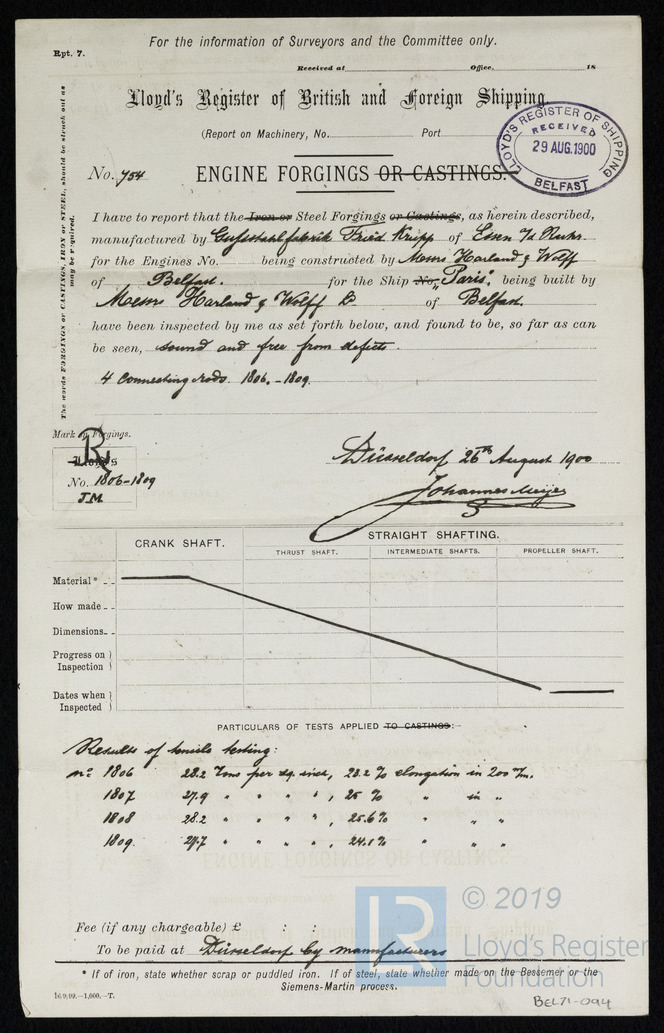 For the information of Surveyors and the Committee only.
Rpt. 7.
Received at Office, 18
Lloyd's Register of British and Foreign Shipping.
(Report on Machinery, No. Port
LLOYD'S REGISTER OF SHIPPING
RECEIVED
29 AUG. 1900
BELFAST
No. 754 ENGINE FORGINGS OR CASTINGS.
The words FORGINGS or CASTINGS, IRON or STEEL, should be struck out as
may be required.
I have to report that the Iron or Steel Forgings or Castings, as herein described,
manufactured by Gussstahlfabrik Fried Krupp of Essen I/d Ruhr.
for the Engines No. being constructed by Messrs Harland & Wolff
of Belfast. for the Ship No. "Paris", being built by
Messrs Harland & Wolff Ld of Belfast
have been inspected by me as set forth below, and found to be, so far as can
be seen, sound and free from defects.
4 Connecting Rods. 1806.-1809.
Mark on Forgings.
R
Lloyd's
No. 1806-1809
J.M.
Düsseldorf 26th August 1900
Johannes Meijer
CRANK SHAFT. STRAIGHT SHAFTING.
THRUST SHAFT. INTERMEDIATE SHAFTS. PROPELLER SHAFT.
Material*
How made
Dimensions
Progress on Inspection
Dates when Inspected
PARTICULARS OF TESTS APPLIED TO CASTINGS:-
Results of tensile testing:
No 1806 28.2 Tons per sq. inch, 23.2 % elongation in 200 m/m.
1807 27.9 " " " ", 25 % " in "
1808 28.2 " " " ", 25.6 % " " "
1809. 27.7 " " " ", 24.1 % " " "
Fee (if any chargeable) £ : :
To be paid at Düsseldorf by manufacturers
* If of iron, state whether scrap or puddled iron. If of steel, state whether made on the Bessemer or the
Siemens-Martin process.
16.9.99.—1,000.—T.
LR
© 2019
Lloyd's Register
Foundation
BEL71-094